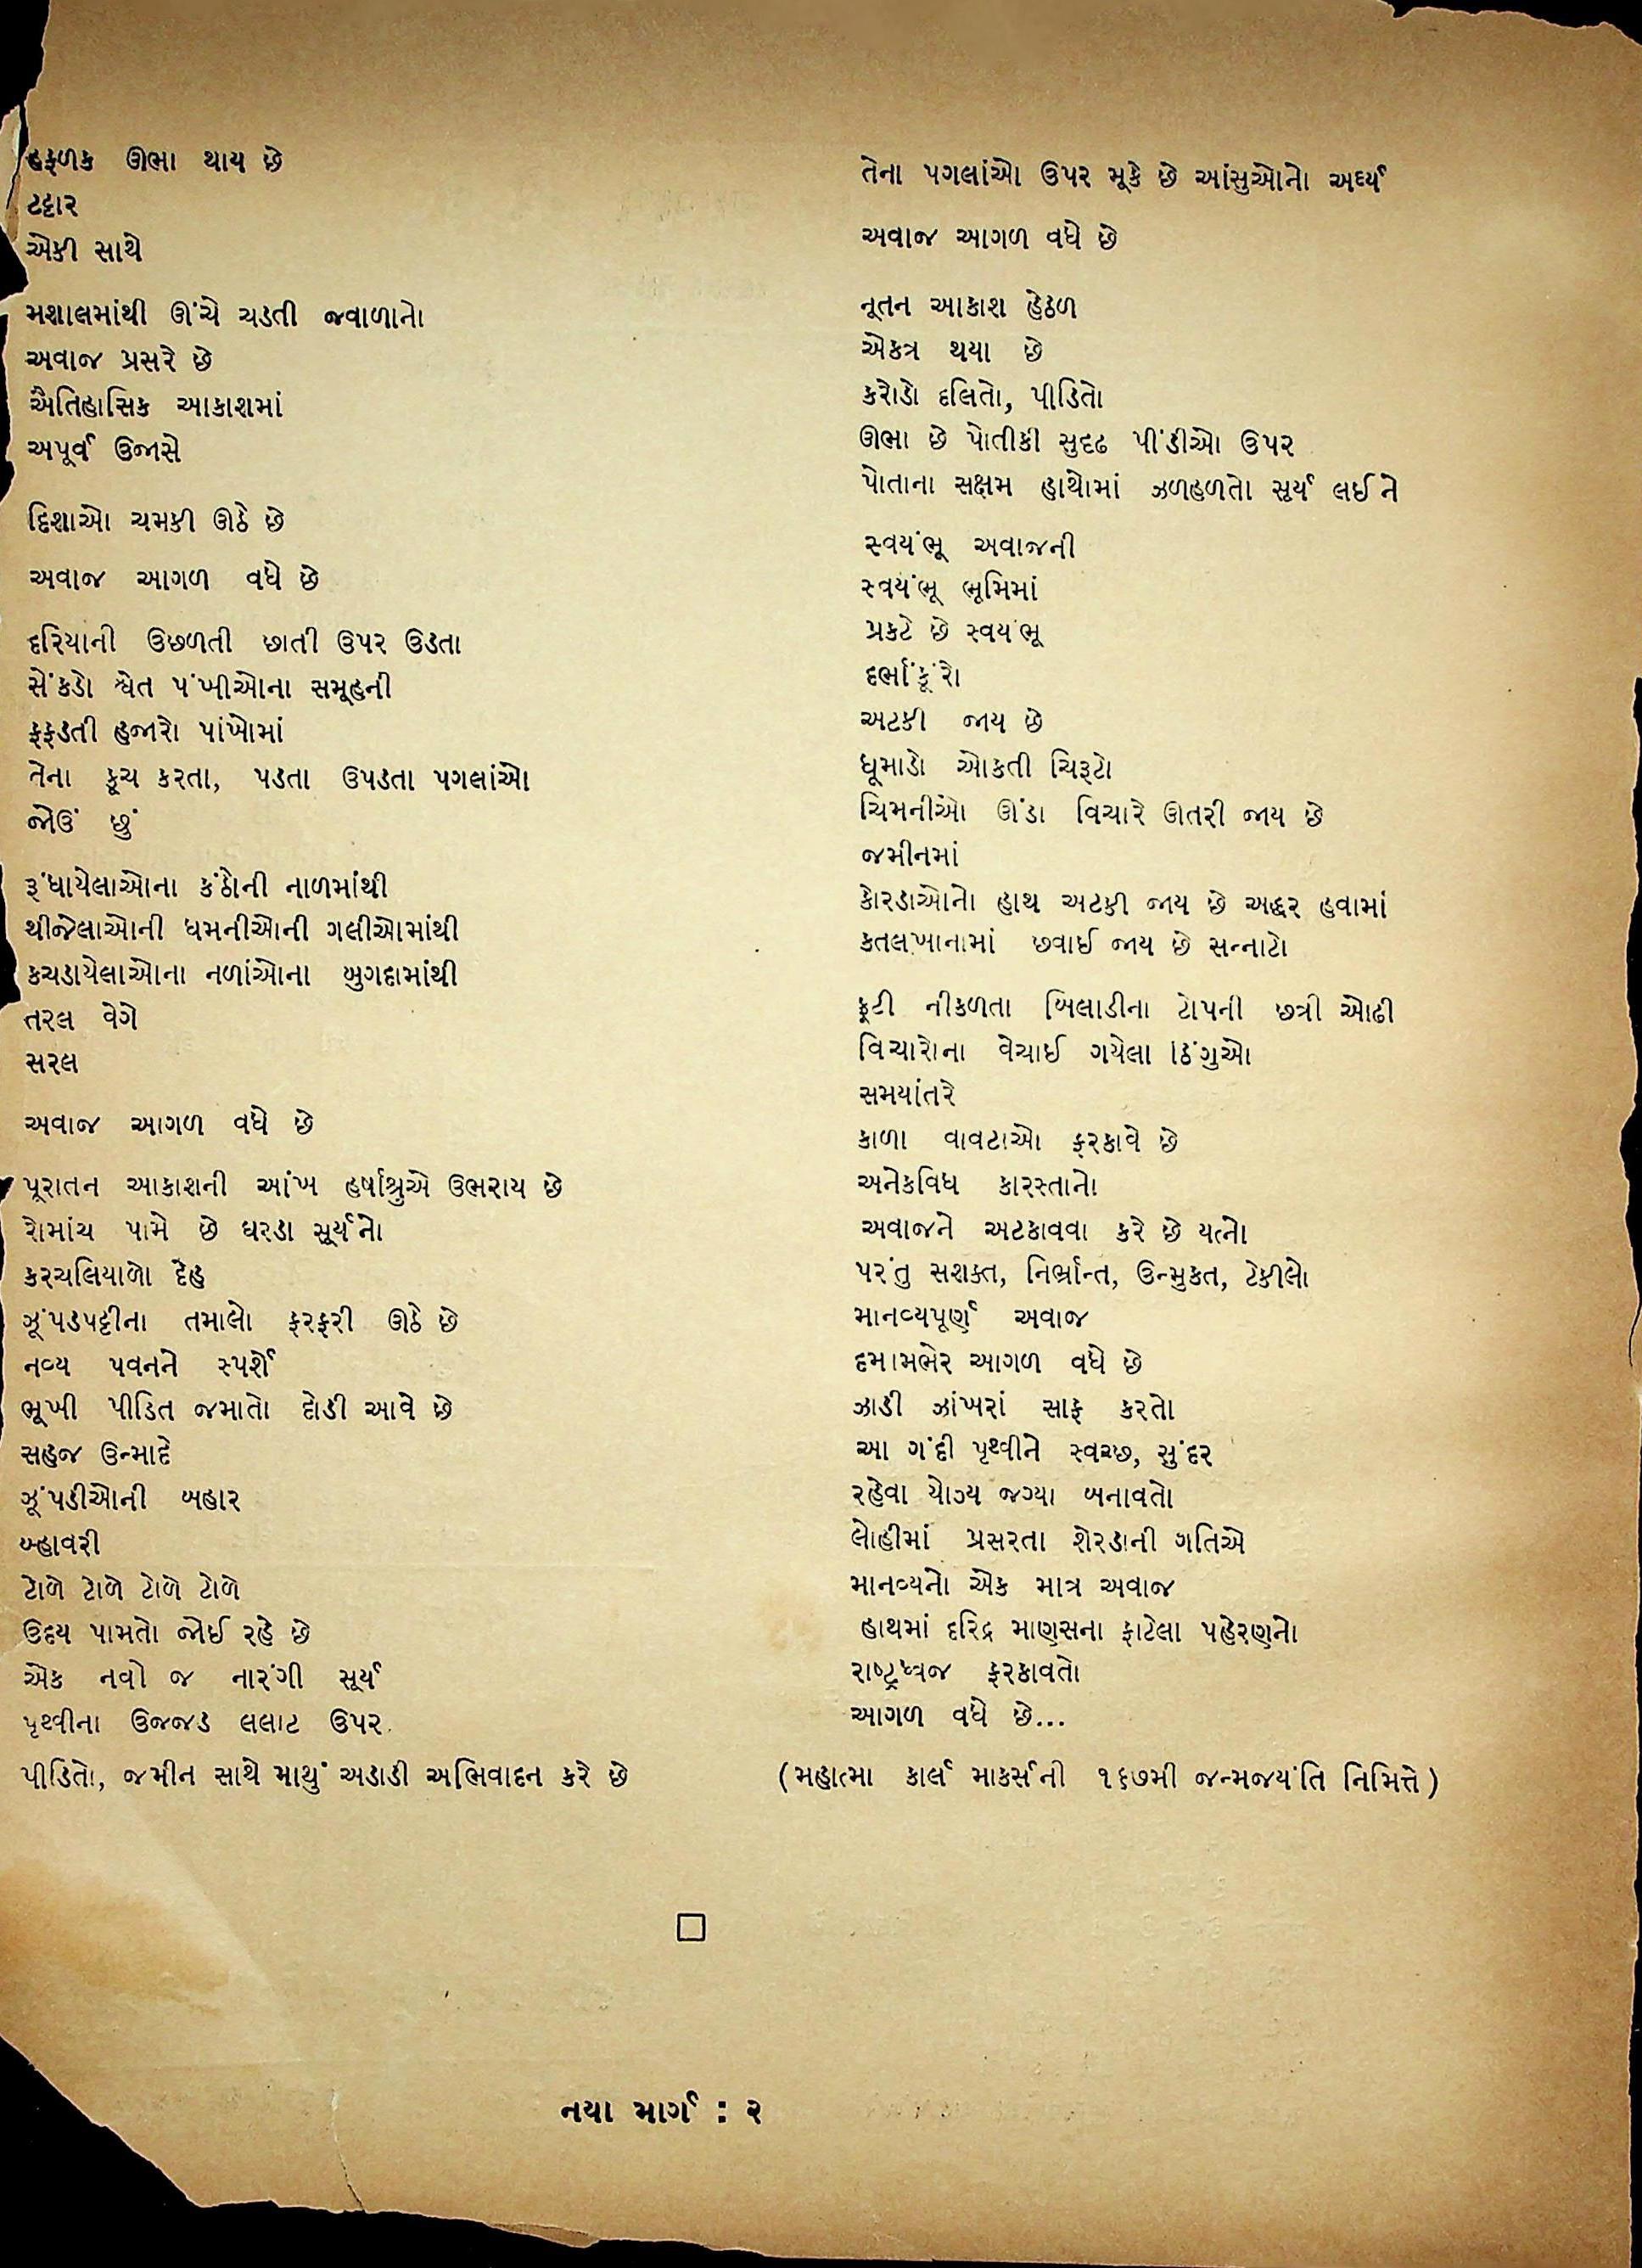 હફળક ઊભા થાય છે
ટટ્ટાર
એકી સાથે
મશાલમાંથી ઊંચે ચડતી જ્વાળાનો
અવાજ પ્રસરે છે
ઐતિહાસિક આકાશમાં
અપૂર્વ ઉજાસે
દિશાઓ ચમકી ઊઠે છે
અવાજ આગળ વધે છે
દરિયાની ઉછળતી છાતી ઉપર ઉડતા
સેંકડો શ્વેત પંખીઓના સમૂહની
ફફડતી હજારો પાંખોમાં
તેના કૂચ કરતા, પડતા ઉપડતા પગલાંઓ
જોઉં છું
રૂંધાયેલાઓના કંઠોની નાળમાંથી
થીજેલાઓની ધમનીઓની ગલીઓમાંથી
કચડાયેલાઓના નળાંઓના બુગદામાંથી
તરલ વેગે
સરલ
અવાજ આગળ વધે છે
પૂરાતન આકાશની આંખ હર્ષાશ્રુએ ઉભરાય છે
રોમાંચ પામે છે ઘરડા સૂર્યનો
કરચલિયાળો દેહ
ઝૂંપડપટ્ટીના તમાલો ફરફરી ઊઠે છે
નવ્ય પવનને સ્પર્શે
ભૂખી પીડિત જમાતો દોડી આવે છે
સહજ ઉન્માદે
ઝૂંપડીઓની બહાર
બ્હાવરી
ટોળે ટોળે ટોળે ટોળે
ઉદય પામતો જોઈ રહે છે
એક નવો જ નારંગી સૂર્ય
પૃથ્વીના ઉજ્જડ લલાટ ઉપર
પીડિતો, જમીન સાથે માથું અડાડી અભિવાદન કરે છે
તેના પગલાંઓ ઉપર મૂકે છે આંસુઓનો અર્ઘ્ય
અવાજ આગળ વધે છે
નૂતન આકાશ હેઠળ
એકત્ર થયા છે
કરોડો દલિતો, પીડિતો
ઊભા છે પોતીકી સુદૃઢ પીંડીઓ ઉપર
પોતાના સક્ષમ હાથોમાં ઝળહળતો સૂર્ય લઈને
સ્વયંભૂ અવાજની
સ્વયંભૂ ભૂમિમાં
પ્રકટે છે સ્વયંભૂ
દર્ભાંકૂંરો
અટકી જાય છે
ધૂમાડો ઓકતી ચિરૂટો
ચિમનીઓ ઊંડા વિચારે ઊતરી જાય છે
જમીનમાં
કોરડાઓનો હાથ અટકી જાય છે અદ્ધર હવામાં
કતલખાનામાં છવાઈ જાય છે સન્નાટો
ફૂટી નીકળતા બિલાડીના ટોપની છત્રી ઓઢી
વિચારોના વેચાઈ ગયેલા ઠિંગુઓ
સમયાંતરે
કાળા વાવટાઓ ફરકાવે છે
અનેકવિધ કારસ્તાનો
અવાજને અટકાવવા કરે છે યત્નો
પરંતુ સશક્ત, નિર્ભ્રાન્ત, ઉન્મુક્ત, ટેકીલો
માનવ્યપૂર્ણ અવાજ
દમામભેર આગળ વધે છે
ઝાડી ઝાંખરાં સાફ કરતો
આ ગંદી પૃથ્વીને સ્વચ્છ, સુંદર
રહેવા યોગ્ય જગ્યા બનાવતો
લોહીમાં પ્રસરતા શેરડાની ગતિએ
માનવ્યનો એક માત્ર અવાજ
હાથમાં દરિદ્ર માણસના ફાટેલા પહેરણનો
રાષ્ટ્રધ્વજ ફરકાવતો
આગળ વધે છે...
(મહાત્મા કાર્લ માર્ક્સની ૧૬૭મી જન્મજયંતિ નિમિત્તે)
નયા માર્ગ : ૨